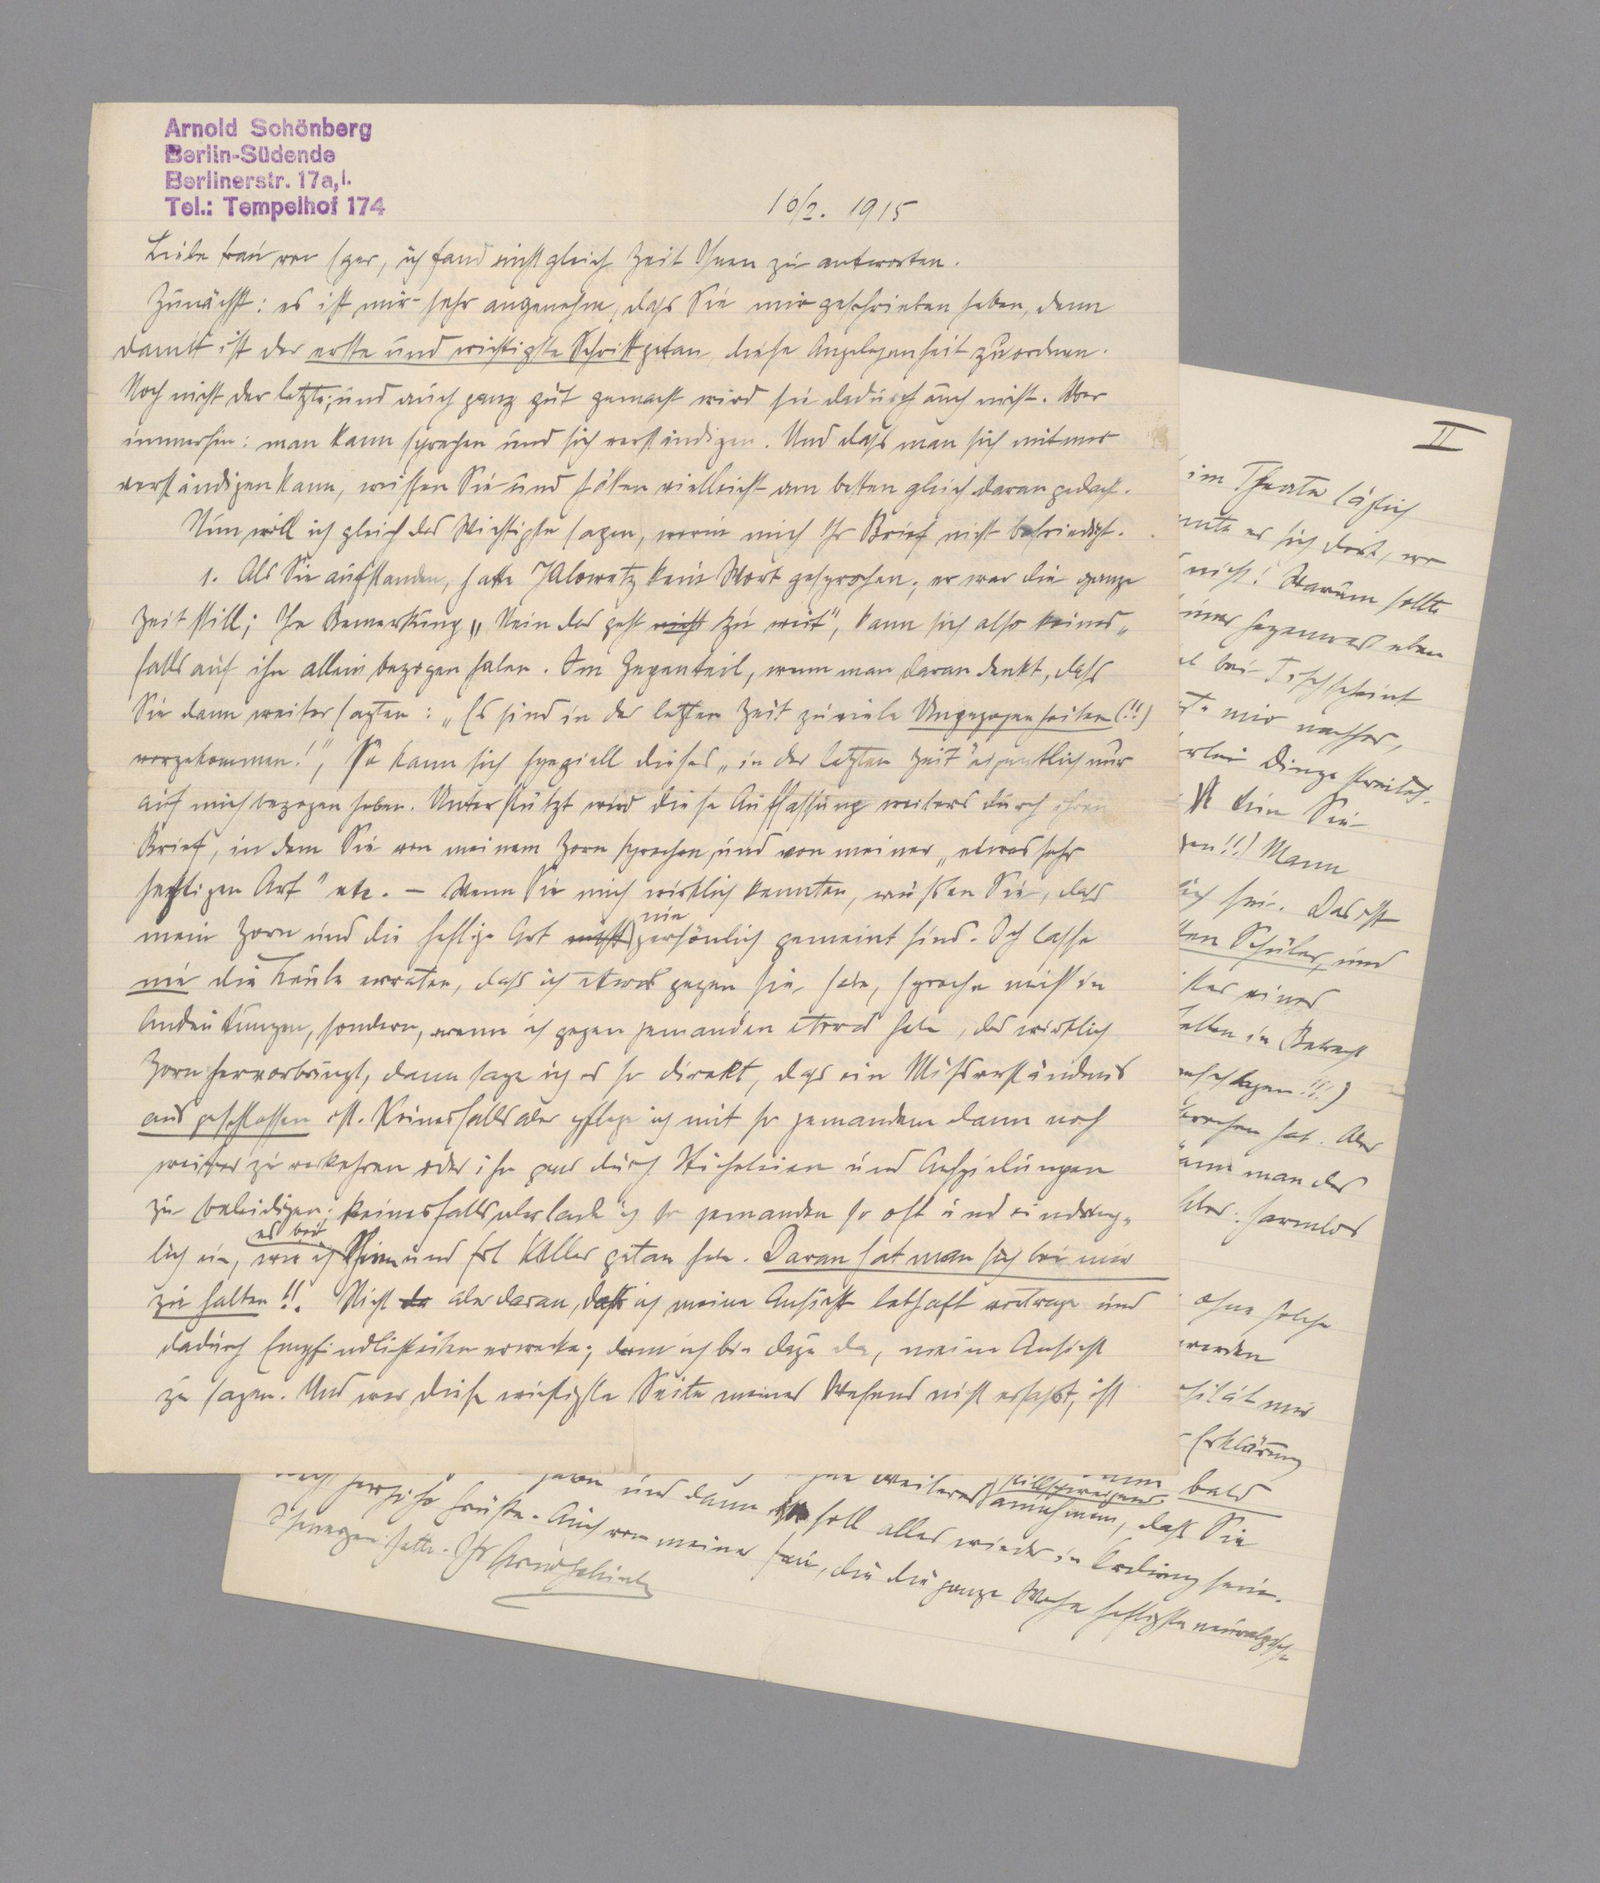 Arnold Schönberg
Berlin-Südende
Berlinerstr. 17a, I.
Tel.: Tempelhof 174
10/2. 1915
Liebe Frau von ich fand nicht gleich Zeit Ihnen zu antworten.
Zunächst: es ist mir sehr angenehm, dass Sie mir geschrieben haben, denn
damit ist der erste und wichtigste Schritt getan, diese Angelegenheit zu ordnen.
Noch nicht der letzte; und auch ganz gut gemacht wird sie dadurch auch nicht. Aber
immerhin: man kann sprechen und sich verständigen. Und dass man sich mit mir
verständigen kann, wissen Sie und hätten vielleicht am besten gleich daran gedacht.
Nun will ich gleich das Wichtigste sagen, worin mich Ihr Brief nicht befriedigt.
1. Als Sie aufstanden, hatte Jalowetz kein Wort gesprochen; er war die ganze
Zeit still; Ihre Bemerkung „Nein das geht nicht zu weit", kann sich also keines-
falls auf ihn allein bezogen haben. Im Gegenteil, wenn man daran denkt, dass
Sie dann weiter sagten: „Es sind in der letzten Zeit zuviele Ungezogenheiten (!!)
vorgekommen!", so kann sich speziell dieses „in der letzten Zeit" eigentlich nur
auf mich bezogen haben. Unterstützt wird diese Auffassung weiters durch ihren
Brief, in dem Sie von meinem Zorn sprechen und von meiner „etwas sehr
heftigen Art" etc. – Wenn Sie mich wirklich kennten, wüssten Sie, dass
mein Zorn und die heftige Art nicht nie persönlich gemeint sind. Ich lasse
nie die Leute erraten, dass ich etwas gegen sie habe, spreche nicht in
Andeutungen, sondern, wenn ich gegen jemanden etwas habe, das wirklich
Zorn hervorbringt, dann sage ich es so direkt, dass ein Missverständnis
ausgeschlossen ist. Keinesfalls aber pflege ich mit so jemandem dann noch
weiter zu verkehren oder ihn gar durch Sticheleien und Anspielungen
zu beleidigen; keinesfalls aber lade ich so jemanden so oft und eindring-
lich ein, wie ich es bei Ihnen und Frl Keller getan habe. Daran hat man sich bei mir
zu halten!!. Nicht da aber daran, dass ich meine Ansicht lebhaft vortrage und
dadurch Empfindlichkeiten erwecke; denn ich bin dazu da, meine Ansicht
zu sagen. Und wer diese wichtigste Seite meines Wesens nicht erfasst, ist
II
im Theater täglich
es sich dort, wo
nicht! Warum sollte
eben
bei Tisch scheint
mir nachher,
Dinge
Sie
!!) Mann
sei. Das ist
Schüler, und
eines
in Betracht
!!!)
hat. Aber
man das
harmlos
ohne solche
werden
mir
Erklärung
bald
und dann weiteres stillschweigend annehmen, dass Sie
soll alles wieder in Ordnung sein.
Grüsse. Auch von meiner Frau, die die ganze Woche heftigste
hatte. Ihr Arnold Schönberg